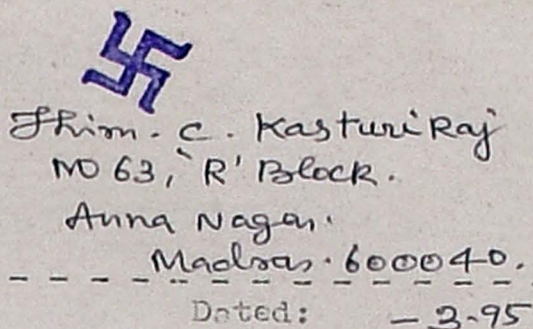 Thim. C. Kasturi Raj
No 63, 'R' Block.
Anna Nagar.
Madras. 600040.
Dated: -3-95